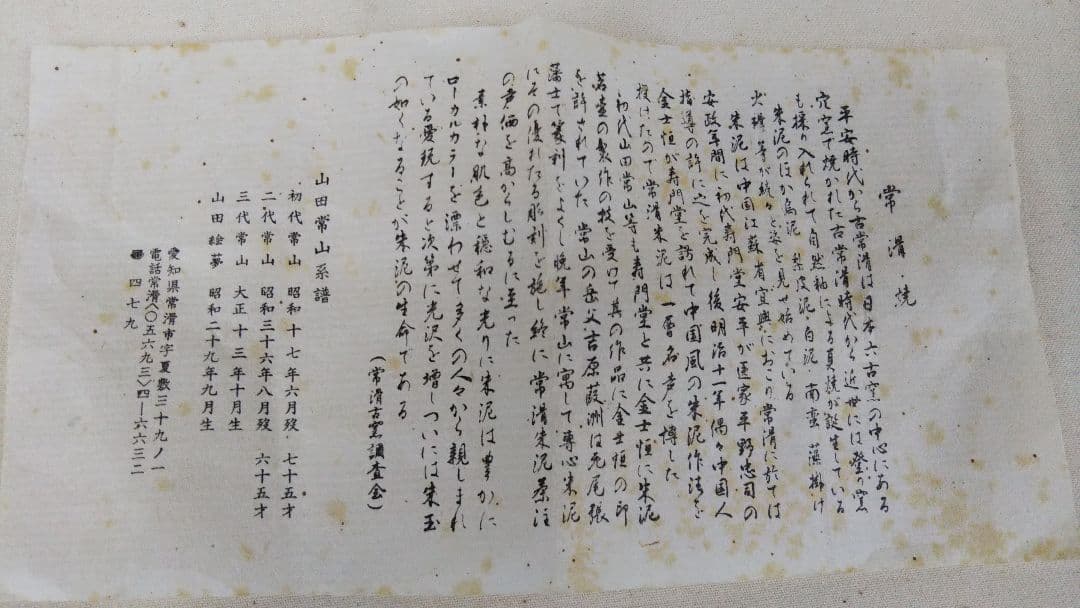 常滑焼
平安時代から古常滑は日本六古窯の中心にある
穴窯で焼かれた古常滑時代から近世には登り窯
も採り入れられて自然釉による真焼が誕生している
朱泥のほか烏泥 梨皮泥 白泥 南蛮 藻掛け
火襷等が続々と姿を見せ始めている
朱泥は中国江蘇省宜興におこり常滑に於ては
安政年間に初代寿門堂安平が医家平野忠司の
指導の許に之を完成し後明治十一年偶々中国人
金士恒が寿門堂を訪れて中国風の朱泥作法を
授けたので常滑朱泥は一層名声を博した
初代山田常山等も寿門堂と共に金士恒に朱泥
茗壺の製作の技を受けて其の作品に金士恒の印
を許されていた 常山の岳父吉原葭洲は元尾張
藩士で篆刻をよくし晩年常山に寓して専心朱泥
にその優れたる彫刻を施し終に常滑朱泥茶注
の声価を高からしむるに至った
素朴な肌色と穏和な光りに朱泥は豊かに
ローカルカラーを漂わせて多くの人々から親しまれ
ている愛玩すると次第に光沢を増しついには朱玉
の如くなることが朱泥の生命である
(常滑古窯調査会)
山田常山系譜
初代常山 昭和十七年六月歿 七十五才
二代常山 昭和三十六年八月歿 六十五才
三代常山 大正十三年十月生
山田絵夢 昭和二十九年九月生
愛知県常滑市字夏敷三十九ノ一
電話常滑〈〇五六九三〉四―六六三二
四七九